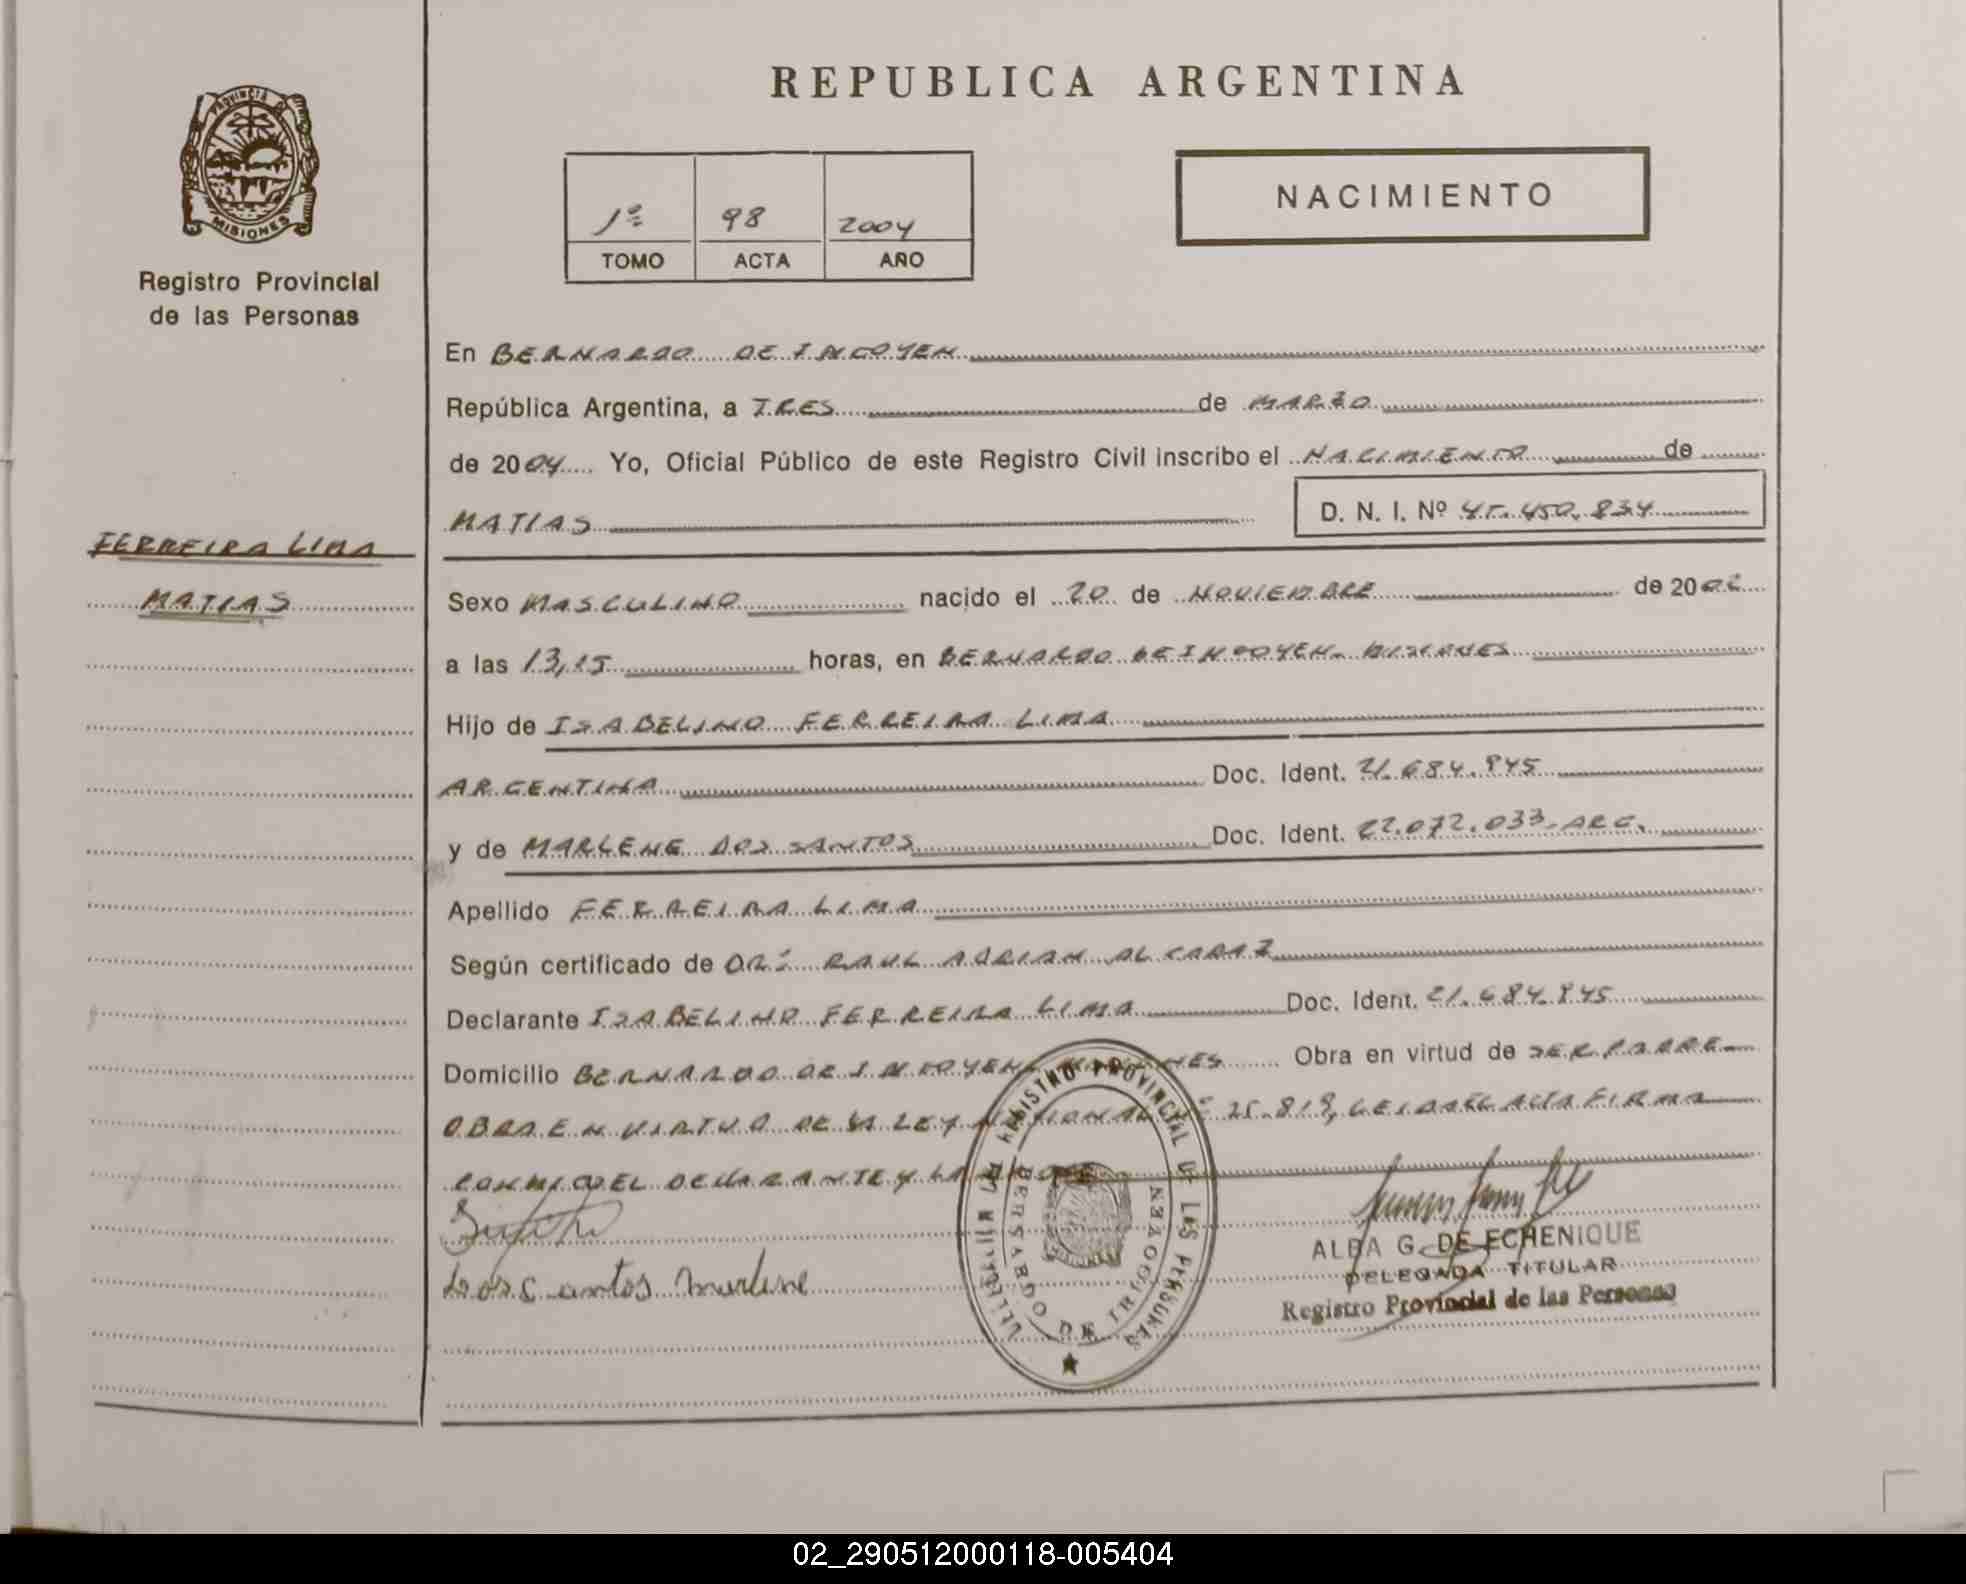 PROVINCIA DE
MISIONES
Registro Provincial
de las Personas
FERREIRA LIMA
MATIAS
REPUBLICA ARGENTINA
1º 98 2004
TOMO ACTA AÑO
NACIMIENTO
En BERNARDO DE IRIGOYEN
República Argentina, a TRES de MARZO
de 2004 Yo, Oficial Público de este Registro Civil inscribo el NACIMIENTO de
MATIAS D. N. I. Nº 45.450.834
Sexo MASCULINO nacido el 20 de NOVIEMBRE de 2002
a las 13,15 horas, en BERNARDO DE IRIGOYEN- MISIONES
Hijo de ISABELINO FERREIRA LIMA
ARGENTINA Doc. Ident. 21.684.845
y de MARLENE DOS SANTOS Doc. Ident. 22.072.033-ARG.
Apellido FERREIRA LIMA
Según certificado de DR: RAUL ADRIAN ALCARAZ
Declarante ISABELINO FERREIRA LIMA Doc. Ident. 21.684.845
Domicilio BERNARDO DE IRIGOYEN- MISIONES Obra en virtud de SER PADRE
OBRA EN VIRTUD DE LA LEY NACIONAL Nº 25.819, LEIDA EL ACTA FIRMA
CONMIGO EL DECLARANTE Y LA MADRE
Dos Santos Marlene
REGISTRO PROVINCIAL DE LAS PERSONAS
BERNARDO DE IRIGOYEN
ALBA G. DE ECHENIQUE
DELEGADA TITULAR
Registro Provincial de las Personas
02_290512000118-005404